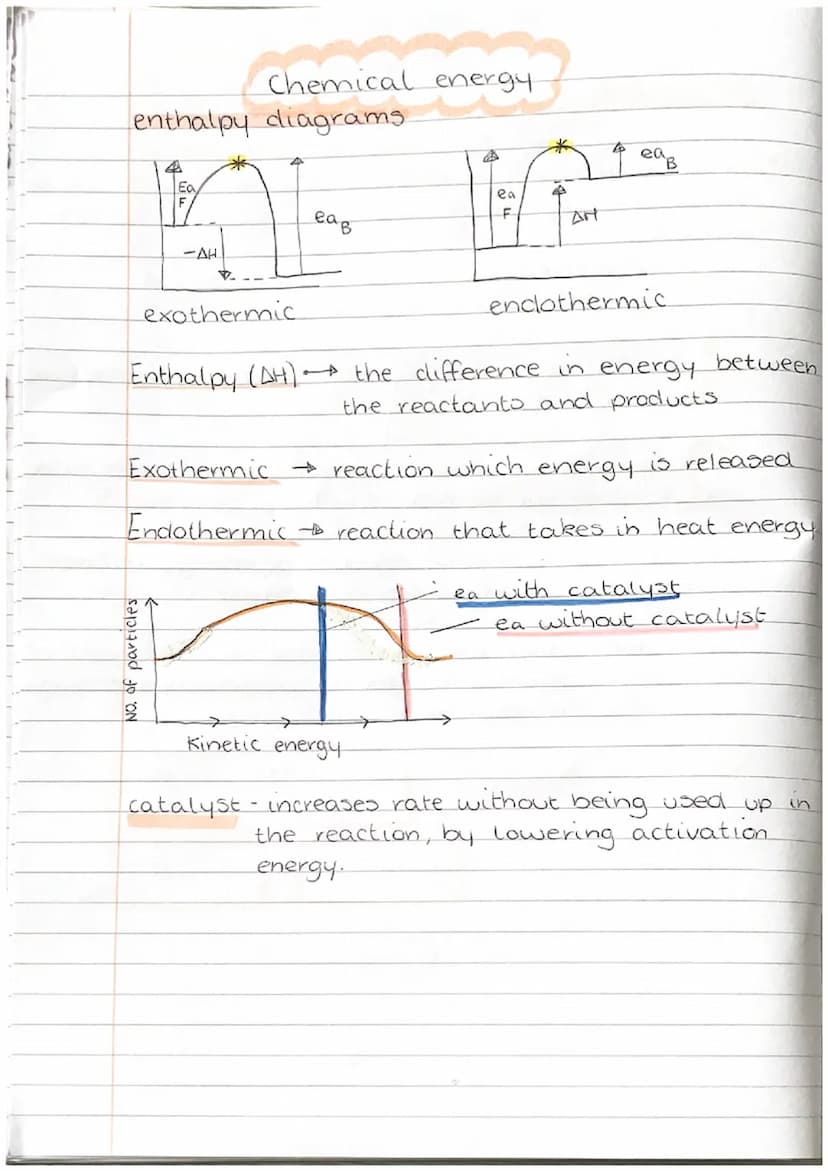 Chemical energy
enthalpy diagrams
Ea
F
-ΔH
ea B
exothermic
ea
F
ΔH
ea B
endothermic
Enthalpy (ΔH) → the difference in energy between
the reactants and products
Exothermic → reaction which energy is released
Endothermic → reaction that takes in heat energy
NO. of particles
ea with catalyst
ea without catalyst
Kinetic energy
catalyst - increases rate without being used up in
the reaction, by lowering activation
energy.